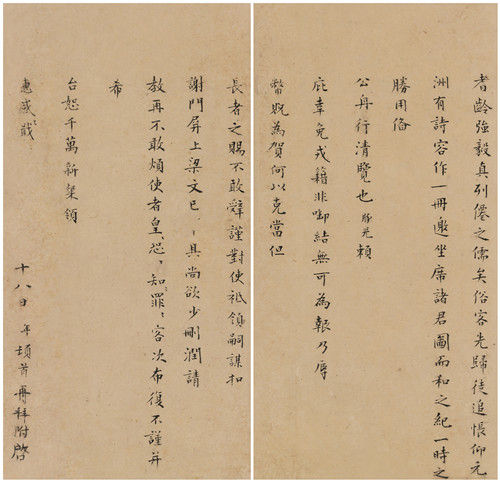 耆齡強毅真列僊之儒矣俗客先歸徒追悵仰元
洲有詩容作一冊邀坐席諸君圖而和之紀一時之
勝用俻
公舟行清覽也豚兒賴
庇幸免戎籍非啣結無可為報乃辱
幣貺為賀何以克當但
長者之賜不敢辭謹對使袛領嗣謀扣
謝門屏上梁文已〻具尚欲少刪潤請
教再不敢煩使者皇〻恐〻知〻罪〻客次布復不謹并
希
台恕千萬新槩領
惠感戢〻
十八日 年頓首再拜附啓